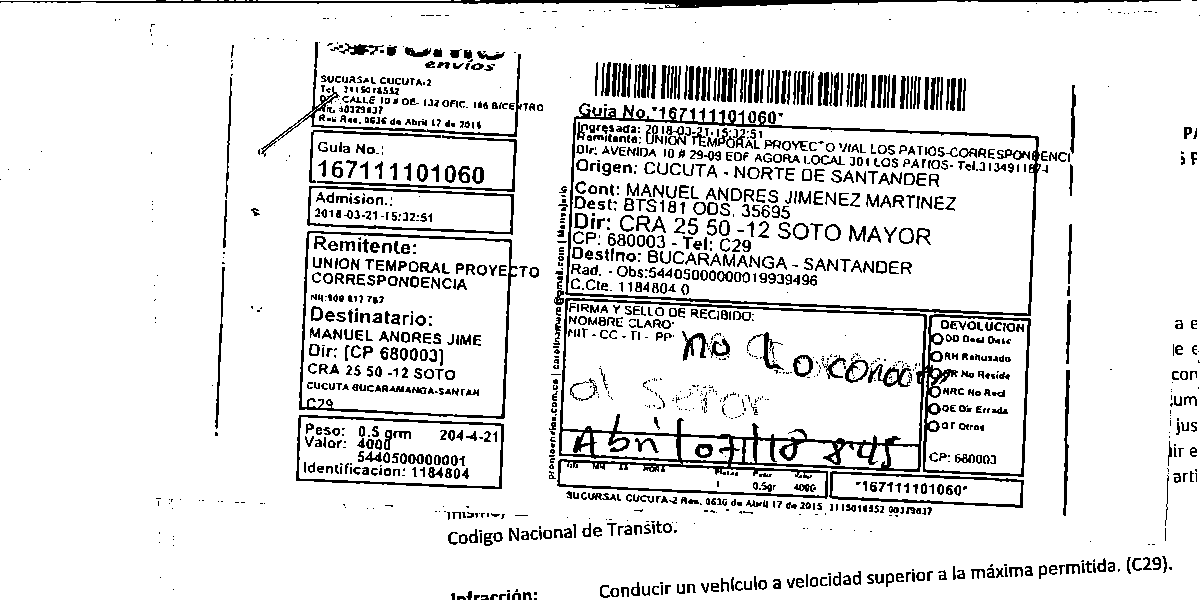 envíos
SUCURSAL CUCUTA-2
Tel. 3115018552
Dir: CALLE 10 # 0E- 132 OFIC. 106 BICENTRO
Nit. 60329837
Res Res. 0636 de Abril 17 de 2015
Guia No.:
167111101060
Admision.:
2018-03-21-15:32:51
Remitente:
UNION TEMPORAL PROYECTO
CORRESPONDENCIA
Nit:900 817 787
Destinatario:
MANUEL ANDRES JIME
Dir: [CP 680003]
CRA 25 50 -12 SOTO
CUCUTA BUCARAMANGA-SANTAN
C29
Peso: 0.5 grm 204-4-21
Valor: 4000
5440500000001
Identificacion: 1184804
Guia No."167111101060"
Ingresada: 2018-03-21-15:32:51
Remitente: UNION TEMPORAL PROYECTO VIAL LOS PATIOS-CORRESPONDENCI
Dir: AVENIDA 10 # 29-09 EDF AGORA LOCAL 301 LOS PATIOS- Tel.
Origen: CUCUTA - NORTE DE SANTANDER
Cont: MANUEL ANDRES JIMENEZ MARTINEZ
Dest: BTS181 ODS. 35695
Dir: CRA 25 50 -12 SOTO MAYOR
CP: 680003 - Tel: C29
Destino: BUCARAMANGA - SANTANDER
Rad. - Obs:54405000000019939496
C.Cte. 1184804 0
FIRMA Y SELLO DE RECIBIDO:
NOMBRE CLARO
NIT - CC - TI - PP
no Lo conoce
al Señor
Abril 07/18 8:45
DEVOLUCION
DD Desl Desc
RH Rehusado
NR No Reside
NRC No Recl
DE Dir Errada
OT Otros
CP: 680003
DD MM AA HORA Piezas Peso Valor
1 0.5gr 4000
"167111101060"
SUCURSAL CUCUTA-2 Res. 0636 de Abril 17 de 2015 3115018552 60329837
Codigo Nacional de Transito.
Infracción: Conducir un vehículo a velocidad superior a la máxima permitida. (C29).